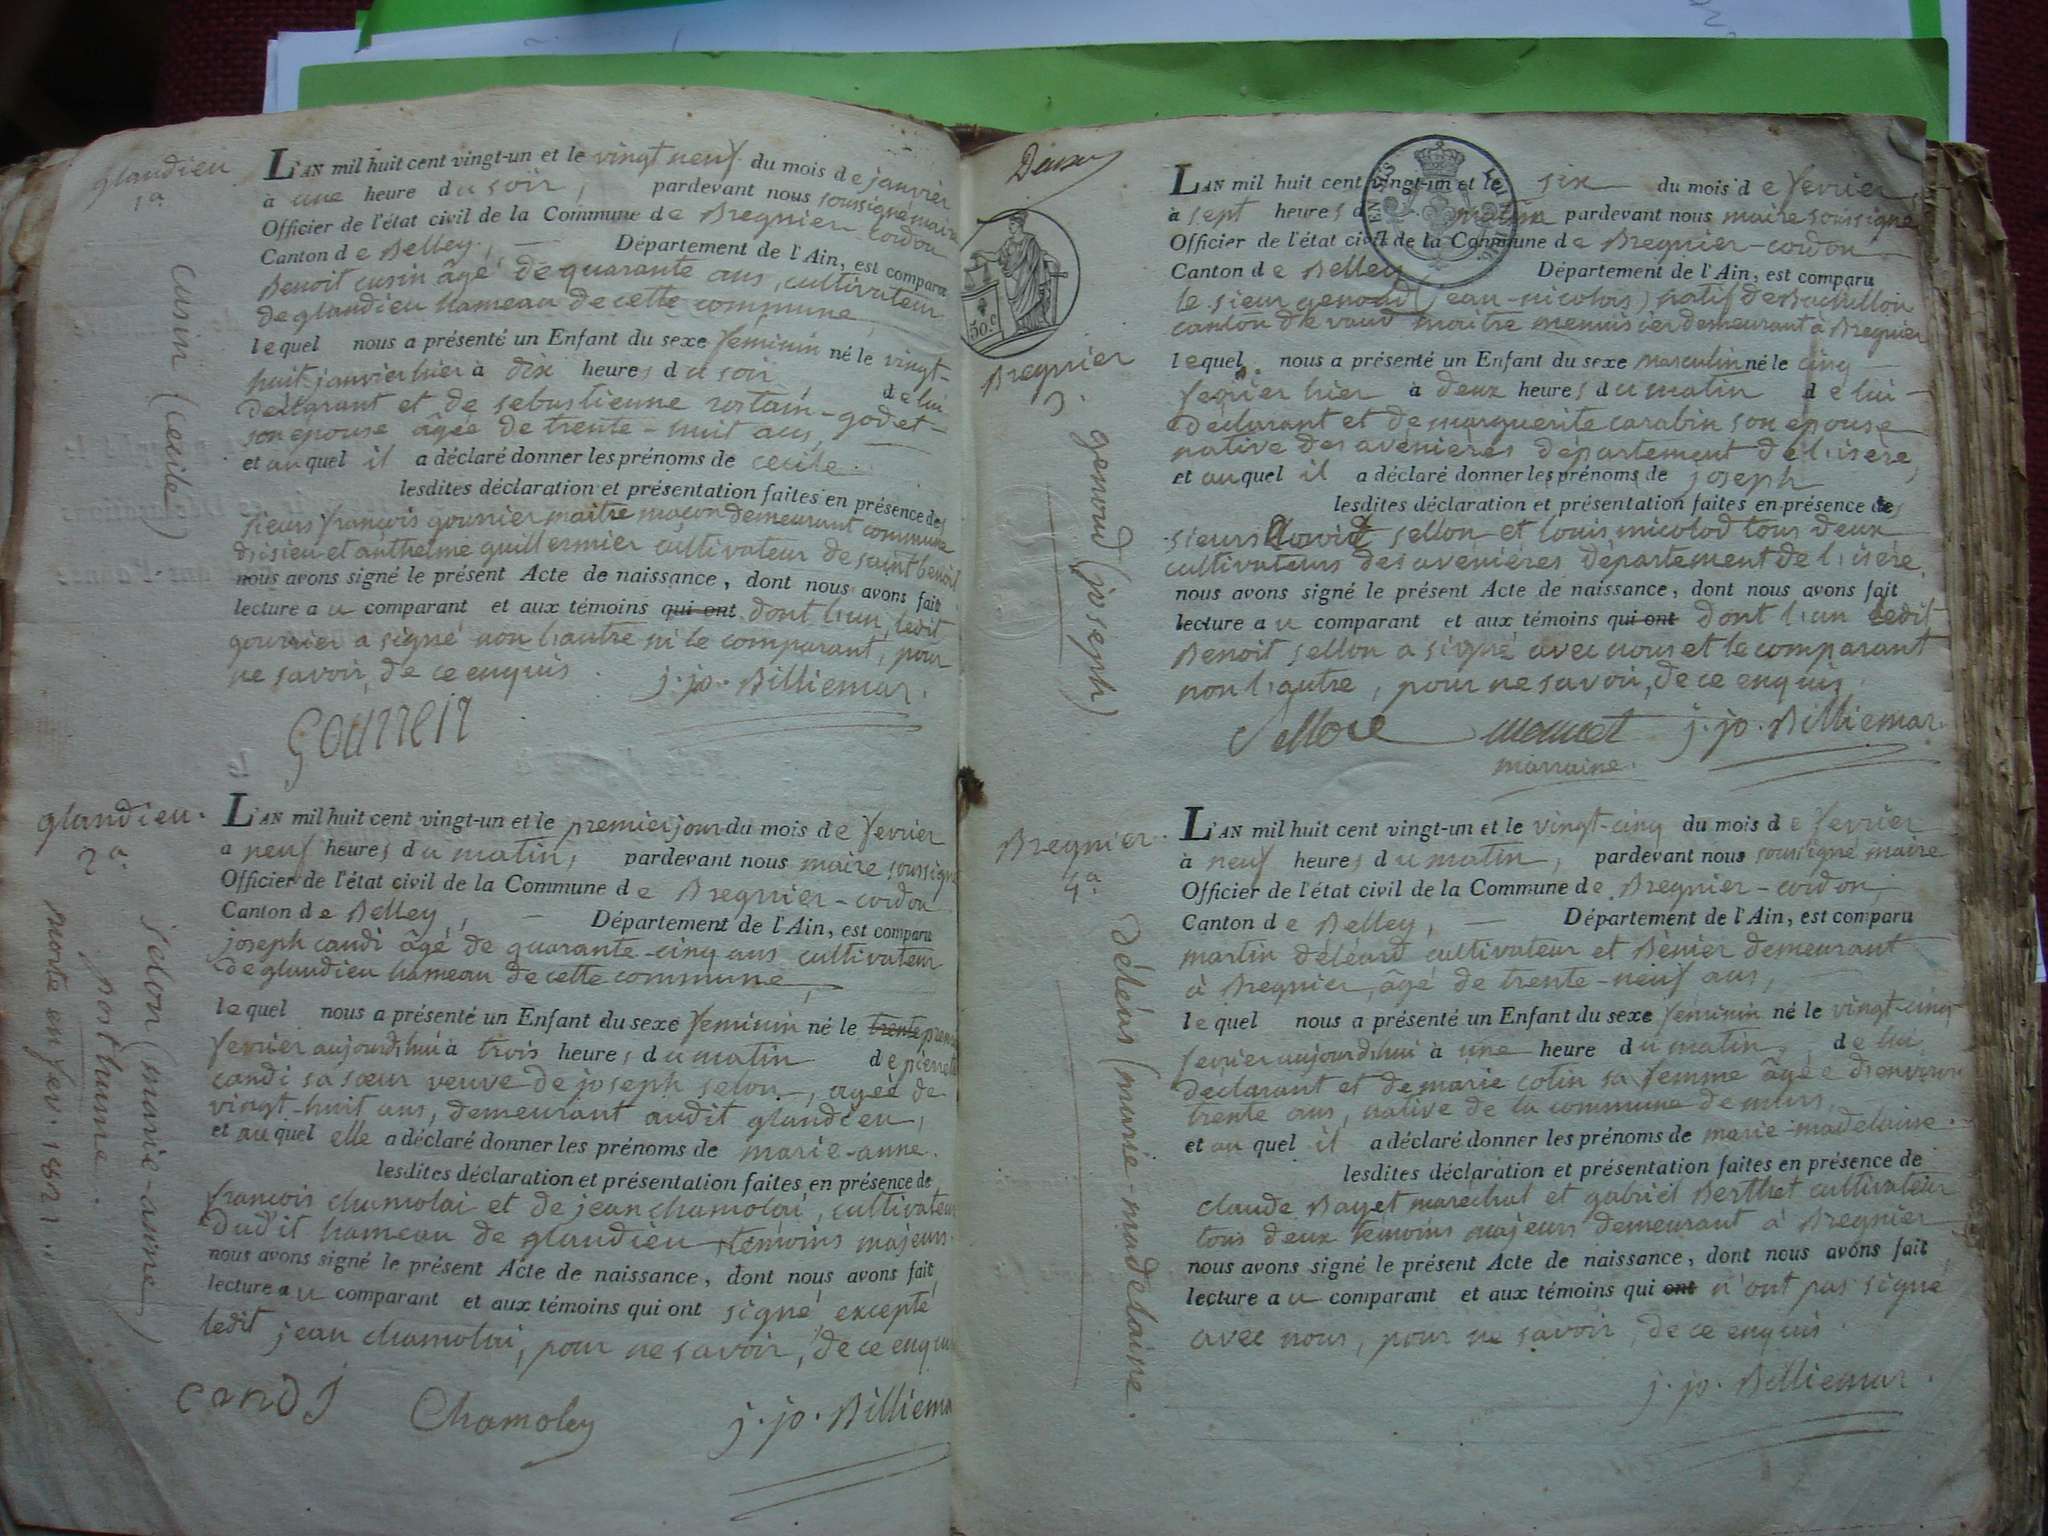 glandieu
1ª
cusin (cecile)
L'AN mil huit cent vingt-un et le vingt neuf du mois de janvier
à une heure du soir, pardevant nous soussigné maire
Officier de l'état civil de la Commune de Bregnier-cordon
Canton de Belley, Département de l'Ain, est comparu
Benoit cusin âgé de quarante ans, cultivateur
de glandieu hameau de cette commune,
lequel nous a présenté un Enfant du sexe feminin né le vingt-
huit janvier hier à dix heures du soir de lui
déclarant et de sebastienne rostain-godet
son épouse âgée de trente-huit ans,
et auquel il a déclaré donner les prénoms de cecile.
lesdites déclaration et présentation faites en présence des
sieurs françois gourrier maitre maçon demeurant commune
d'isieu et anthelme guillermier cultivateur de saint benoit
nous avons signé le présent Acte de naissance, dont nous avons fait
lecture au comparant et aux témoins qui ont dont l'un, ledit
gourrier a signé non l'autre ni le comparant, pour
ne savoir, de ce enquis. j. jo. Billiemar.
gourreir
glandieu.
2ª
selon (marie-anne)
posthume.
morte en fev. 1821.
L'AN mil huit cent vingt-un et le premier jour du mois de fevrier
à neuf heures du matin, pardevant nous maire soussigné
Officier de l'état civil de la Commune de Bregnier-cordon
Canton de Belley, Département de l'Ain, est comparu
joseph candi âgé de quarante-cinq ans cultivateur
de glandieu hameau de cette commune,
lequel nous a présenté un Enfant du sexe feminin né le trente premier
fevrier aujourd'hui à trois heures du matin de pierrette
candi sa sœur veuve de joseph selon, agée de
vingt-huit ans, demeurant audit glandieu,
et auquel elle a déclaré donner les prénoms de marie-anne.
lesdites déclaration et présentation faites en présence de
françois chamolai et de jean chamolai, cultivateurs
dudit hameau de glandieu, témoins majeurs.
nous avons signé le présent Acte de naissance, dont nous avons fait
lecture au comparant et aux témoins qui ont signé, excepté
ledit jean chamolai, pour ne savoir, de ce enquis
candi Chamoley j. jo. Billiemar
50 c
Bregnier
3.
genoud (joseph)
L'AN mil huit cent vingt-un et le six du mois de fevrier
à sept heures du matin pardevant nous maire soussigné
Officier de l'état civil de la Commune de Bregnier-cordon
Canton de Belley Département de l'Ain, est comparu
le sieur genoud (jean-nicolas) natif de
canton de vaud maitre menuisier demeurant à Bregnier
lequel nous a présenté un Enfant du sexe masculin né le cinq
fevrier hier à deux heures du matin de lui
déclarant et de marguerite carabin son epouse
native des avenières département de l'isère,
et auquel il a déclaré donner les prénoms de joseph
lesdites déclaration et présentation faites en présence des
sieurs sellon et louis micolod tous deux
cultivateurs des avénières département de l'isère.
nous avons signé le présent Acte de naissance, dont nous avons fait
lecture au comparant et aux témoins qui ont dont l'un ledit
Benoit sellon a signé avec nous et le comparant
non l'autre, pour ne savoir, de ce enquis.
j. jo. Billiemar.
marraine.
Bregnier.
4ª
déléas (marie-madelaine.
L'AN mil huit cent vingt-un et le vingt-cinq du mois de fevrier
à neuf heures du matin, pardevant nous soussigné maire
Officier de l'état civil de la Commune de Bregnier-cordon,
Canton de Belley, Département de l'Ain, est comparu
martin déléard cultivateur et Benier demeurant
à Bregnier, âgé de trente-neuf ans,
lequel nous a présenté un Enfant du sexe feminin né le vingt-cinq
fevrier aujourd'hui à une heure du matin, de lui
déclarant et de marie colin sa femme âgée d'environ
trente ans, native de la commune de murs,
et auquel il a déclaré donner les prénoms de marie-madelaine.
lesdites déclaration et présentation faites en présence de
claude Bayet marechal et gabriel Berthet cultivateur
tous deux témoins majeurs demeurant à Bregnier
nous avons signé le présent Acte de naissance, dont nous avons fait
lecture au comparant et aux témoins qui ont n'ont pas signé
avec nous, pour ne savoir, de ce enquis.
j. jo. Billiemar.